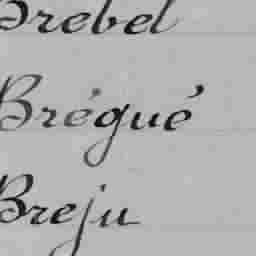 Brebel
Brégué
Breju